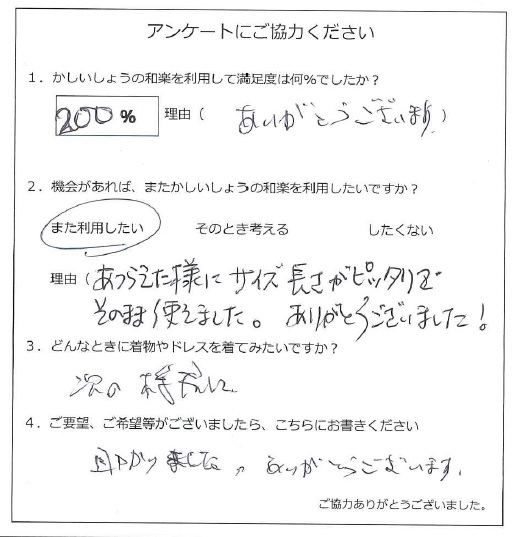 アンケートにご協力ください
1．かしいしょうの和楽を利用して満足度は何%でしたか？
200 % 理由（ ありがとうございます）
2．機会があれば、またかしいしょうの和楽を利用したいですか？
また利用したい そのとき考える したくない
理由（あつらえた様にサイズ長さがピッタリで
そのまま使えました。ありがとうございました！
3．どんなときに着物やドレスを着てみたいですか？
次の
4．ご要望、ご希望等がございましたら、こちらにお書きください
ました。ありがとうございます。
ご協力ありがとうございました。